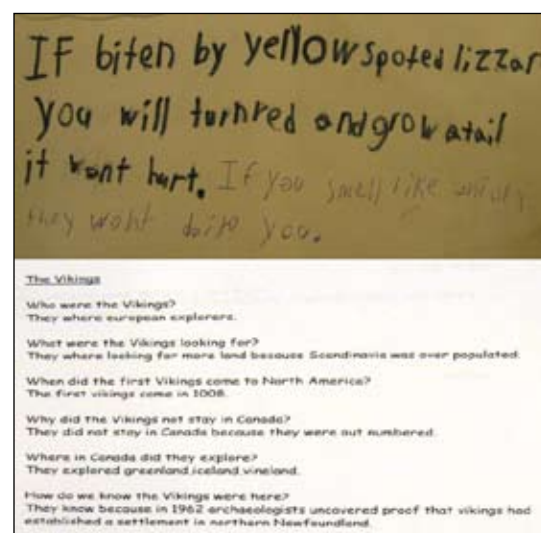 If biten by yellow spoted lizzar
you will turn red and grow a tail
it wont hurt. If you smell like
they wont bite you.
The Vikings
Who were the Vikings?
They where european explorers.
What were the Vikings looking for?
They where looking for more land because Scandinavia was over populated.
When did the first Vikings come to North America?
The first vikings come in 1008.
Why did the Vikings not stay in Canada?
They did not stay in Canada because they were out numbered.
Where in Canada did they explore?
They explored greenland,iceland,vineland.
How do we know the Vikings were here?
They know because in 1962 archaeologists uncovered proof that vikings had
established a settlement in northern Newfoundland.